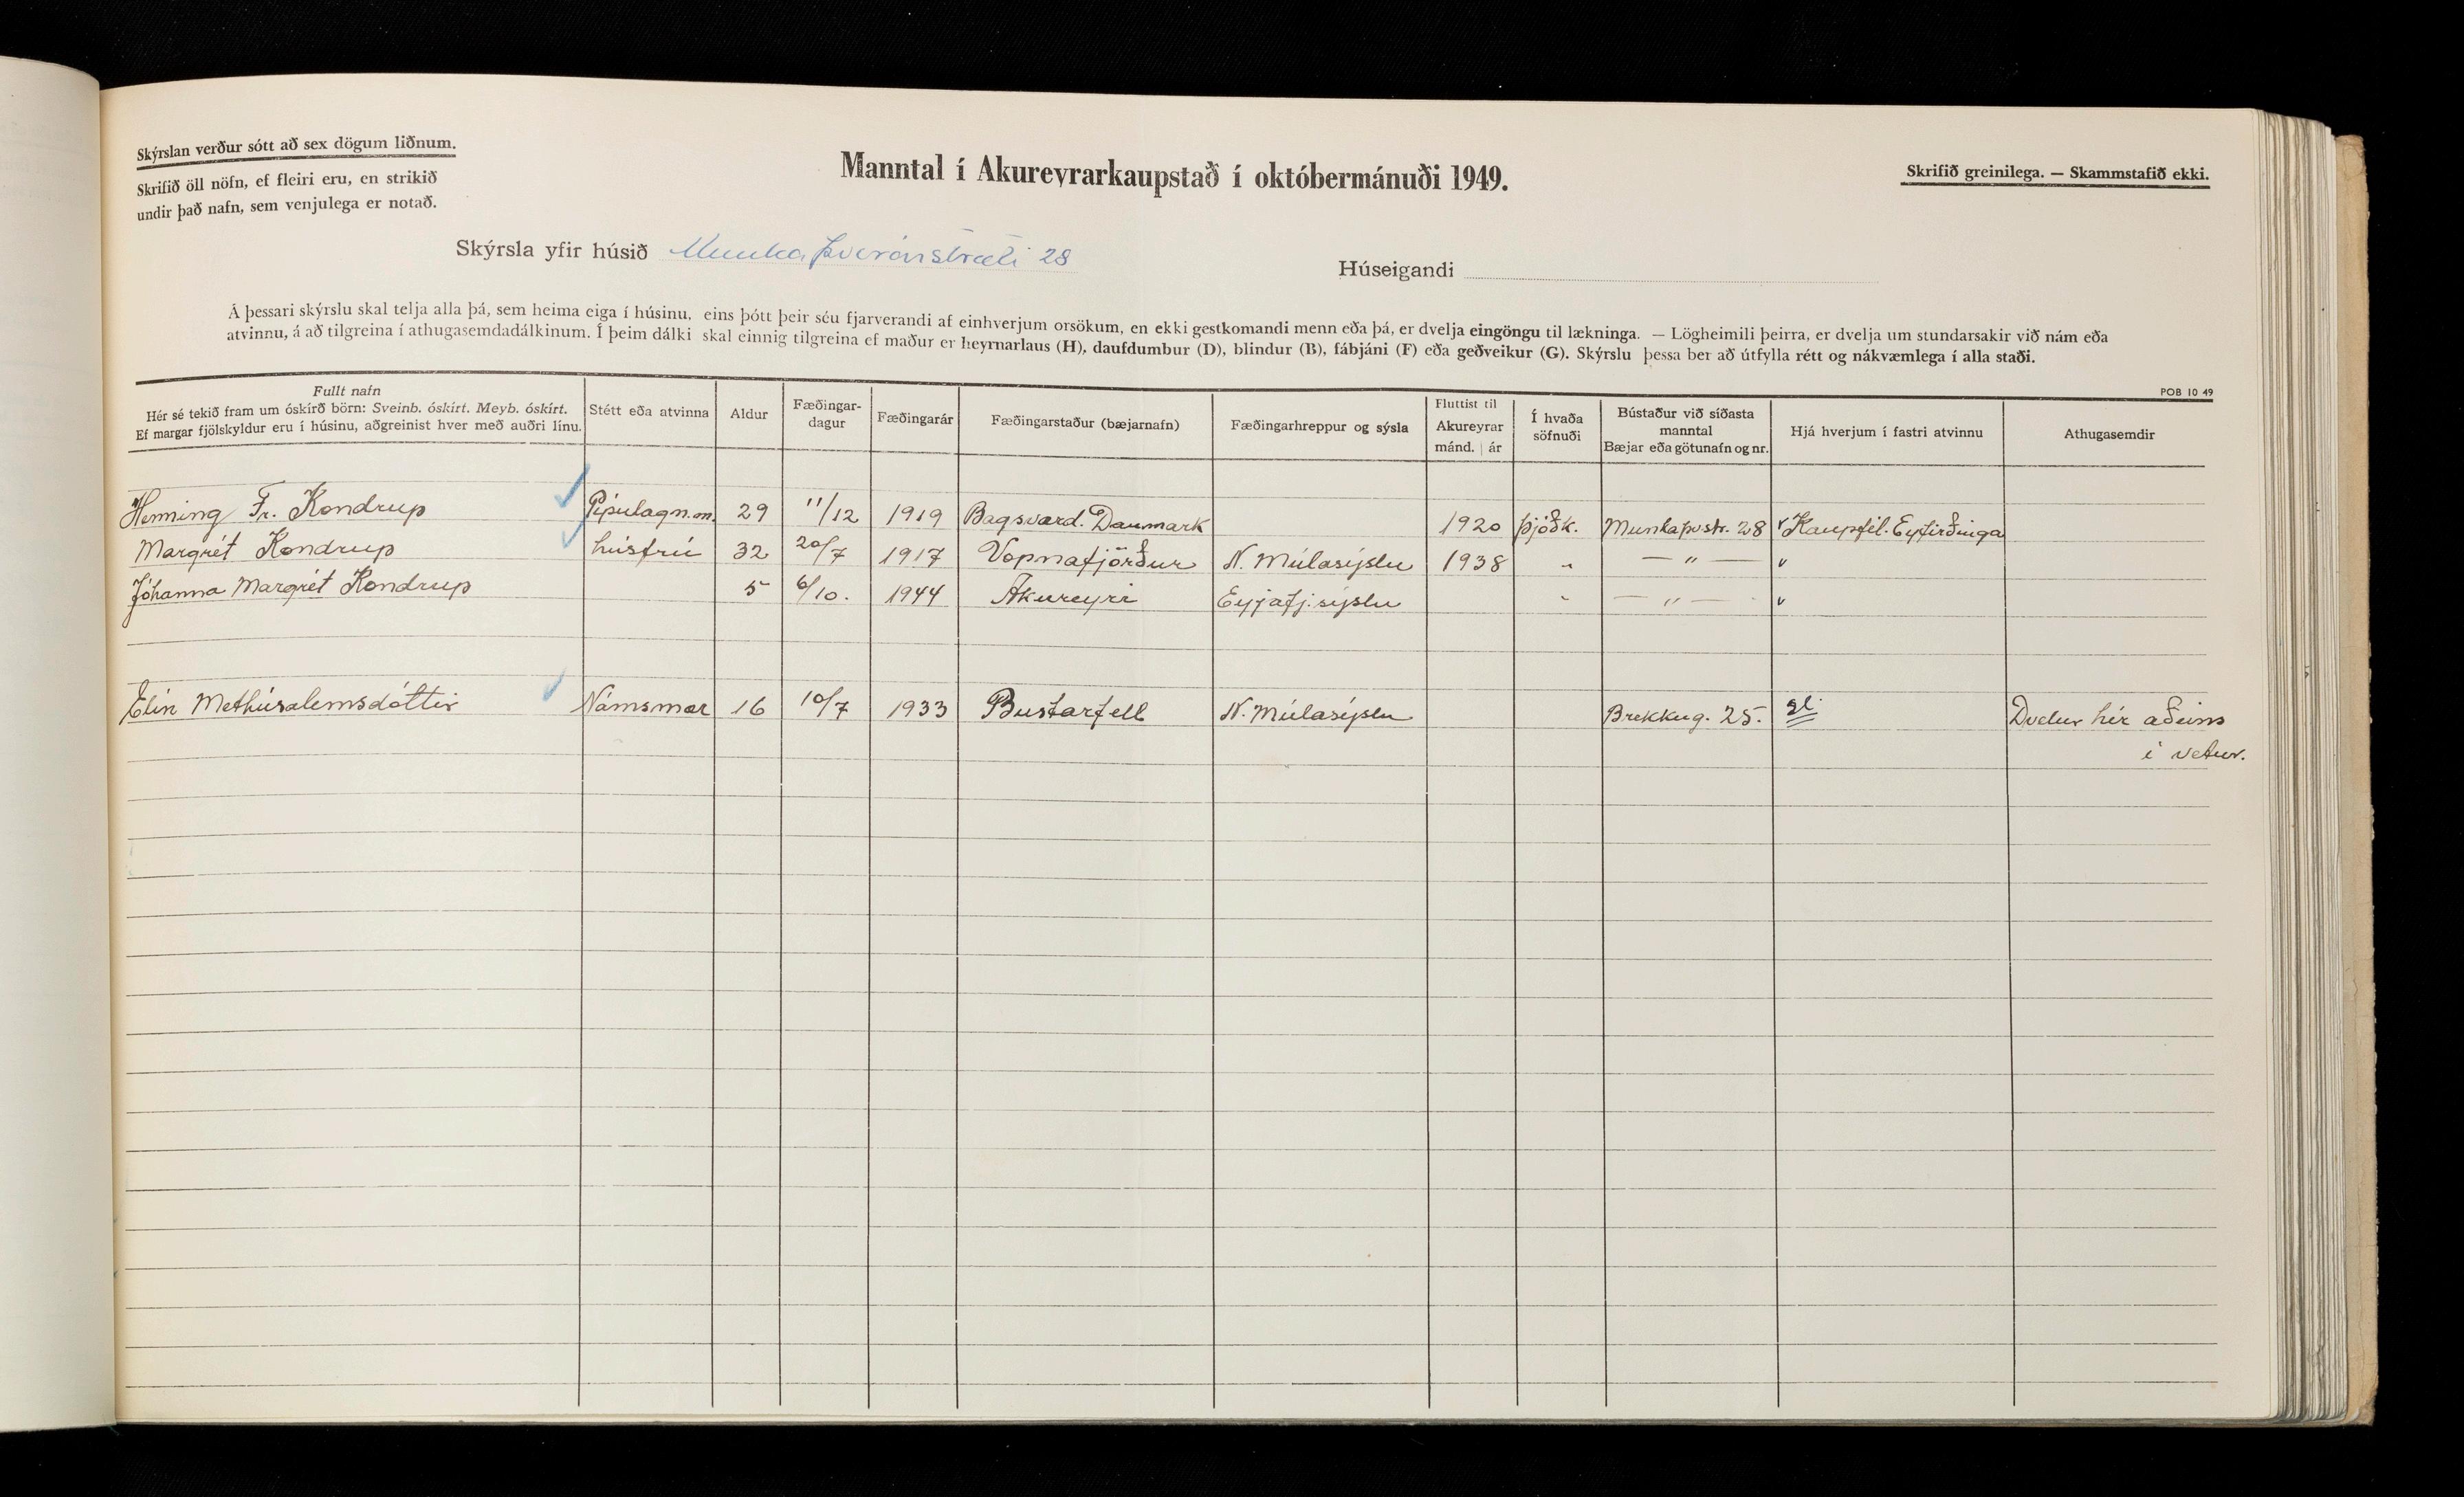 Skýrslan verður sótt að sex dögum liðnum.
Skrifið öll nöfn, ef fleiri eru, en strikið
undir það nafn, sem venjulega er notað.
Manntal í Akureyrarkaupstað í októbermánuði 1949.
Skrifið greinilega. — Skammstafið ekki.
Skýrsla yfir húsið Munkaþverárstræti 28
Húseigandi
Á þessari skýrslu skal telja alla þá, sem heima eiga í húsinu, eins þótt þeir séu fjarverandi af einhverjum orsökum, en ekki gestkomandi menn eða þá, er dvelja eingöngu til lækninga. — Lögheimili þeirra, er dvelja um stundarsakir við nám eða
atvinnu, á að tilgreina í athugasemdadálkinum. Í þeim dálki skal einnig tilgreina ef maður er heyrnarlaus (H), daufdumbur (D), blindur (B), fábjáni (F) eða geðveikur (G). Skýrslu þessa ber að útfylla rétt og nákvæmlega í alla staði.
POB 10 49
Fullt nafn
Hér sé tekið fram um óskírð börn: Sveinb. óskírt. Meyb. óskírt.
Ef margar fjölskyldur eru í húsinu, aðgreinist hver með auðri línu.
Stétt eða atvinna
Aldur
Fæðingar-
dagur
Fæðingarár
Fæðingarstaður (bæjarnafn)
Fæðingarhreppur og sýsla
Fluttist til
Akureyrar
mánd. | ár
Í hvaða
söfnuði
Bústaður við síðasta
manntal
Bæjar eða götunafn og nr.
Hjá hverjum í fastri atvinnu
Athugasemdir
Henning Fr. Kondrup Pípulagn.m. 29 11/12 1919 Bagsværd. Danmark 1920 Þjóðk. Munkaþvstr. 28 Kaupfél. Eyfirðinga
Margrét Kondrup húsfrú 32 20/7 1917 Vopnafjörður N. Múlasýslu 1938 " — " —
Jóhanna Margrét Kondrup 5 6/10. 1944 Akureyri Eyjafj.sýslu " — " —
Elín Methúsalemsdóttir Námsmær 16 10/7 1933 Bustarfell N. Múlasýslu Brekkug. 25. Dvelur hér aðeins
í vetur.